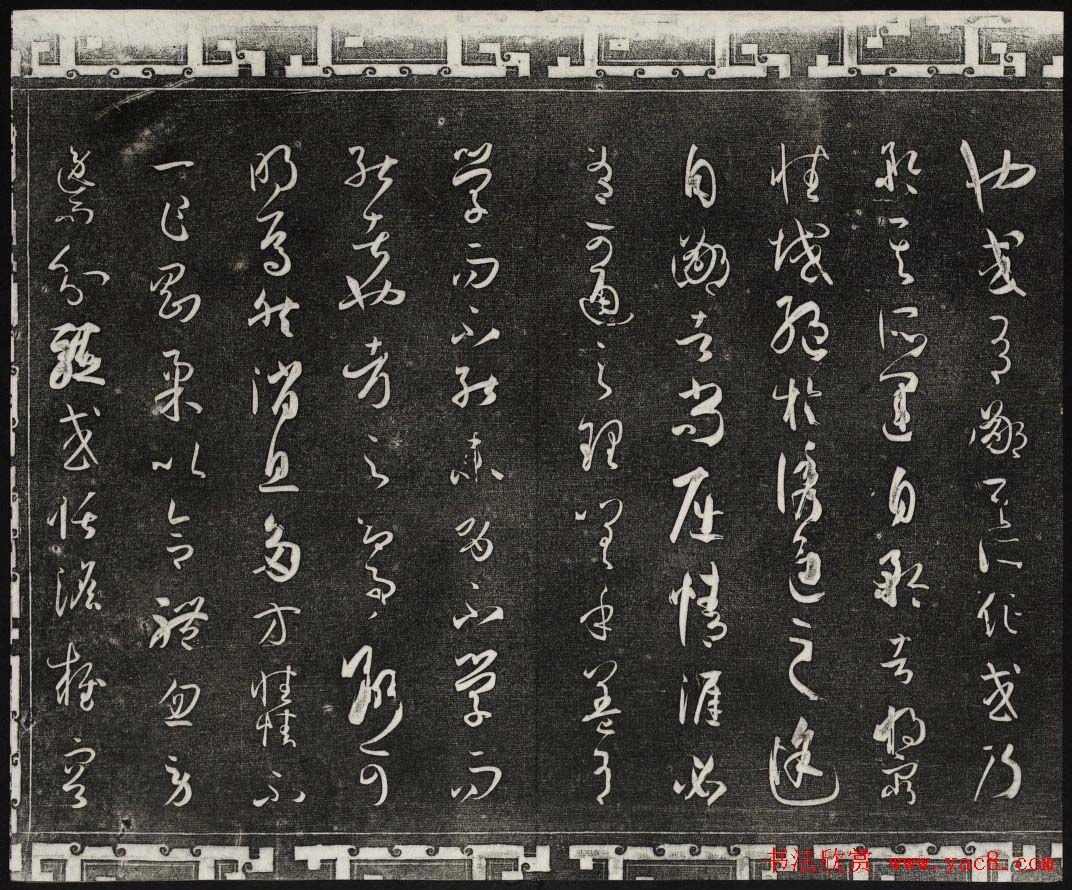 也或有鄙其所作或乃
矜其所運自矜者將窮
性域絕於誘進之途
自鄙者尚屈情涯必
有可通之理嗟乎蓋有
學而不能未有不學而
能者也考之即事斷可
明焉然消息多方性情不
一乍剛柔以合體忽勞
逸而分驅或恬澹雍容
书法欣赏 www.yac8.com